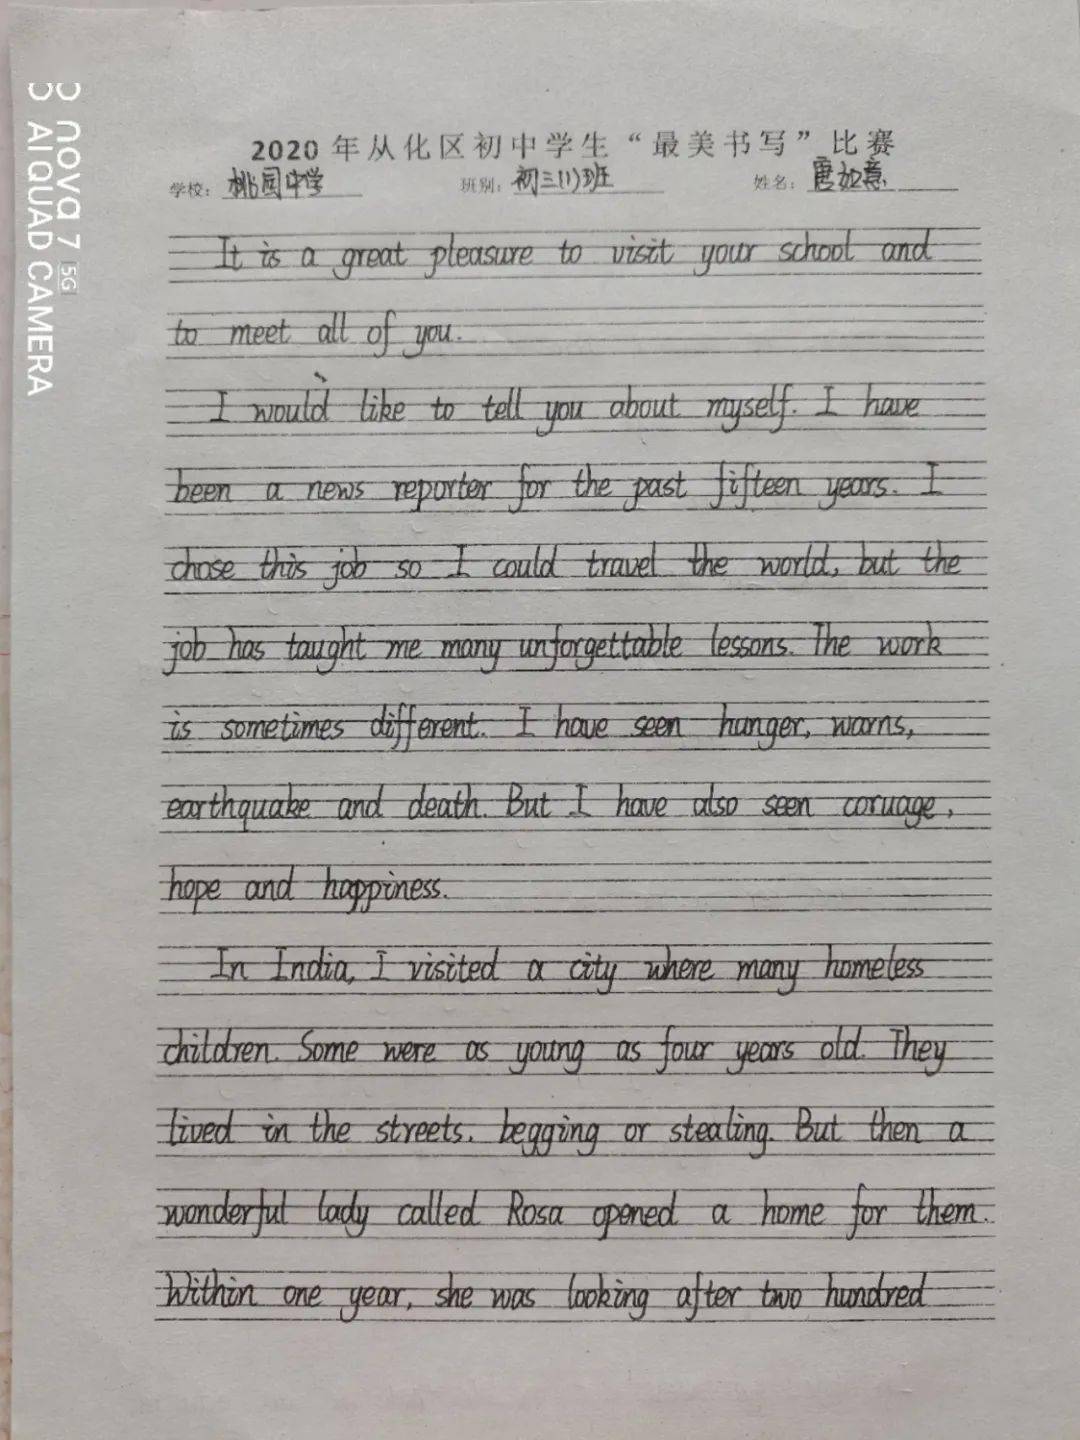 2020年从化区初中学生“最美书写”比赛
学校：桃园中学 班别：初三(1)班 姓名：唐如意
It is a great pleasure to visit your school and
to meet all of you.
I would like to tell you about myself. I have
been a news reporter for the past fifteen years. I
chose this job so I could travel the world, but the
job has taught me many unforgettable lessons. The work
is sometimes different. I have seen hunger, warns,
earthquake and death. But I have also seen coruage,
hope and happiness.
In India, I visited a city where many homeless
children. Some were as young as four years old. They
lived in the streets. begging or stealing. But then a
wonderful lady called Rosa opened a home for them.
Within one year, she was looking after two hundred
nova 7 5G
AI QUAD CAMERA